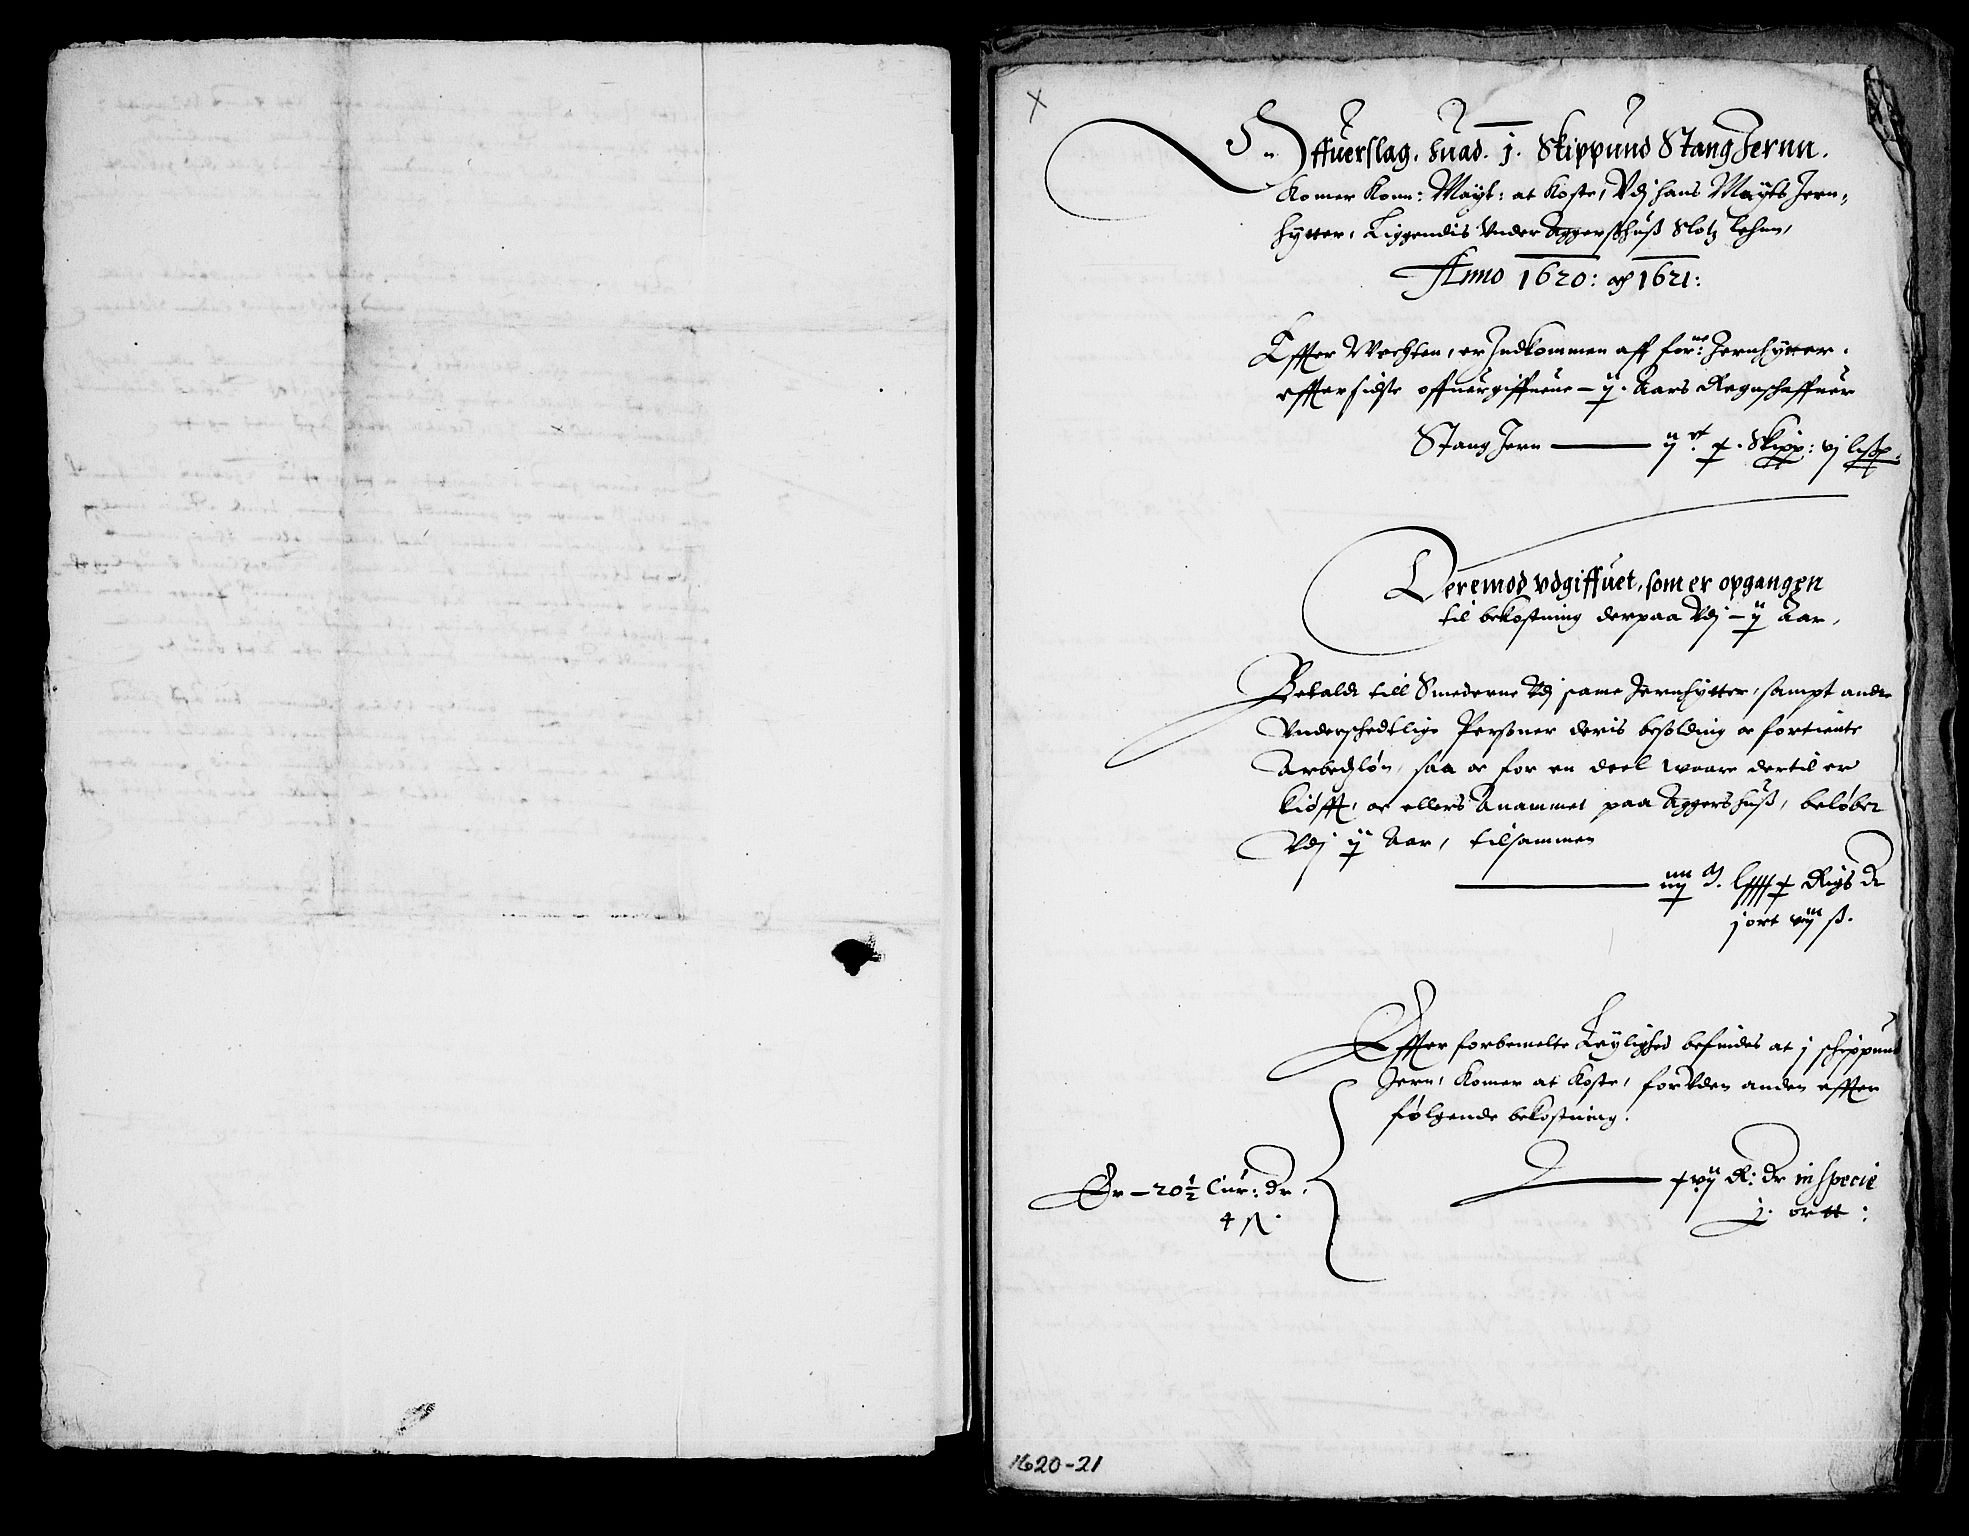 Offuerslag. huad. j. Skippund Stang Jernn.
Komer Konn: Mayt: at koste, Vdj hans Mayts Jern¬
hytter, Liggendis Vnder Aggershuß Slotz Lehnn,
Anno 1620: och 1621:
Effter Wechten, er Indkommen aff forne: Jernhytter.
effter sidste offuergiffuene – ij. Aars Regnschaffuer
Stang Jern — ijct. x. Skipp: vj lißp:
Deremod vdgiffuet, som er opgangen
til bekostning derpaa Vdj – ij Aar,
Betaldt till Smederne Vdj same Jernhytter, sampt andre
Vnderschedtlige Personer deris besolding oc fortiente
Arbedzløn, saa oc for en deel waare dertil er
kiøfft, oc ellers Anammet paa Aggershuß, beløber
Vdj ij Aar, tilsammen
Rigs dr
j ort viij ß.
Effter forbemelte Leylighed befindes at j schippund
Jern, komer at koste, foruden anden effter
følgende bekostning.
xvij R: dr in specie
j. ortt:
Er – 20½ Cur: dr.
4 ß.
1620-21